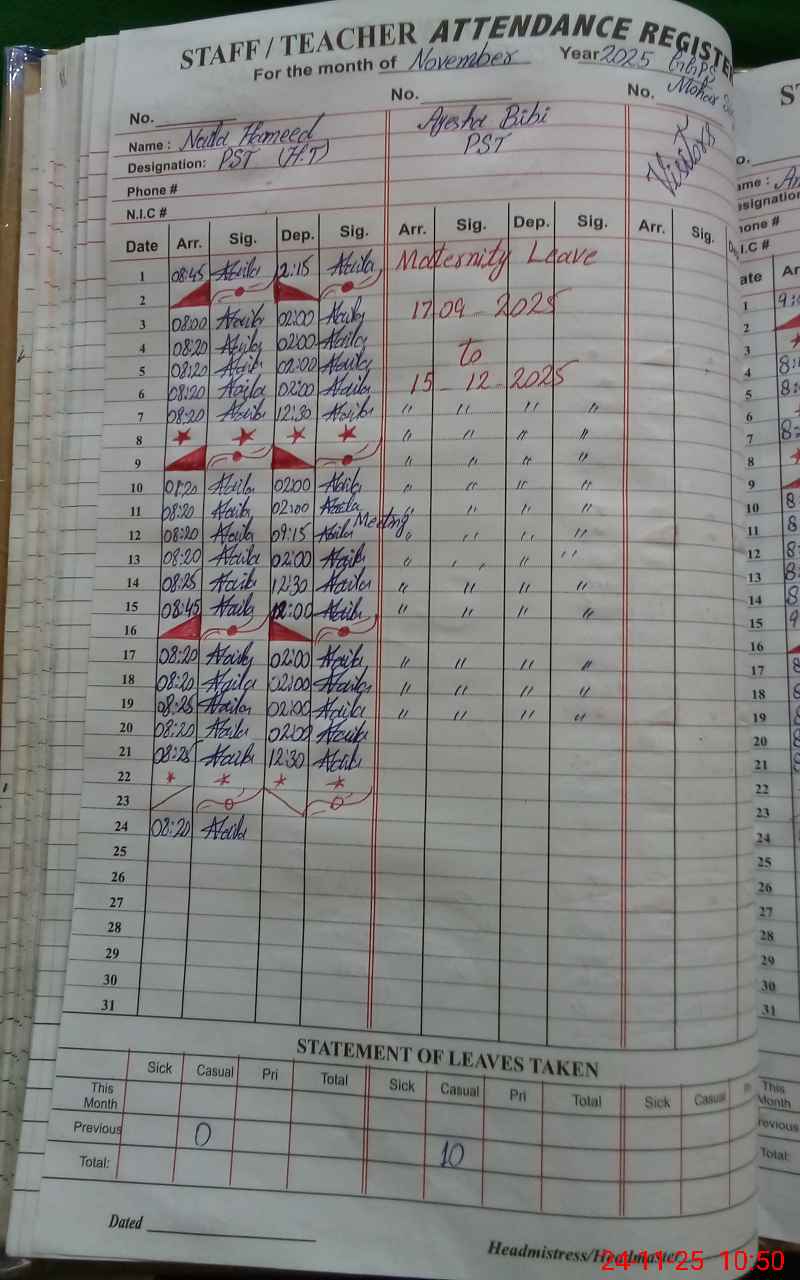 STAFF / TEACHER ATTENDANCE REGISTE
For the month of November Year 2025 GGPS
No. No. No.
Name : Naila Hameed Ayesha Bibi Visitors
Designation: PST (H.T) PST
Phone #
N.I.C #
Date Arr. Sig. Dep. Sig. Arr. Sig. Dep. Sig. Arr. Sig.
1 08:45 Naila 12:15 Naila Maternity Leave
2
3 08:00 Naila 02:00 Naila 17.09 - 2025
4 08:20 Naila 02:00 Naila
5 08:20 Naila 02:00 Naila to
6 08:20 Naila 02:00 Naila 15 - 12 - 2025
7 08:20 Naila 12:30 Naila " " " "
8 " " " "
9 " " " "
10 08:20 Naila 02:00 Naila " " " "
11 08:20 Naila 02:00 Naila " " " "
12 08:20 Naila 09:15 Naila Meeting " " " "
13 08:20 Naila 02:00 Naila " " " "
14 08:25 Naila 12:30 Naila " " " "
15 08:45 Naila 12:00 Naila " " " "
16
17 08:20 Naila 02:00 Naila " " " "
18 08:20 Naila 02:00 Naila " " " "
19 08:25 Naila 02:00 Naila " " " "
20 08:20 Naila 02:00 Naila
21 08:25 Naila 12:30 Naila
22
23
24 08:20 Naila
25
26
27
28
29
30
31
STATEMENT OF LEAVES TAKEN
Sick Casual Pri Total Sick Casual Pri Total Sick Casual
This Month
Previous 0
Total: 10
Dated
Headmistress/Headmaster
24-11-25 10:50